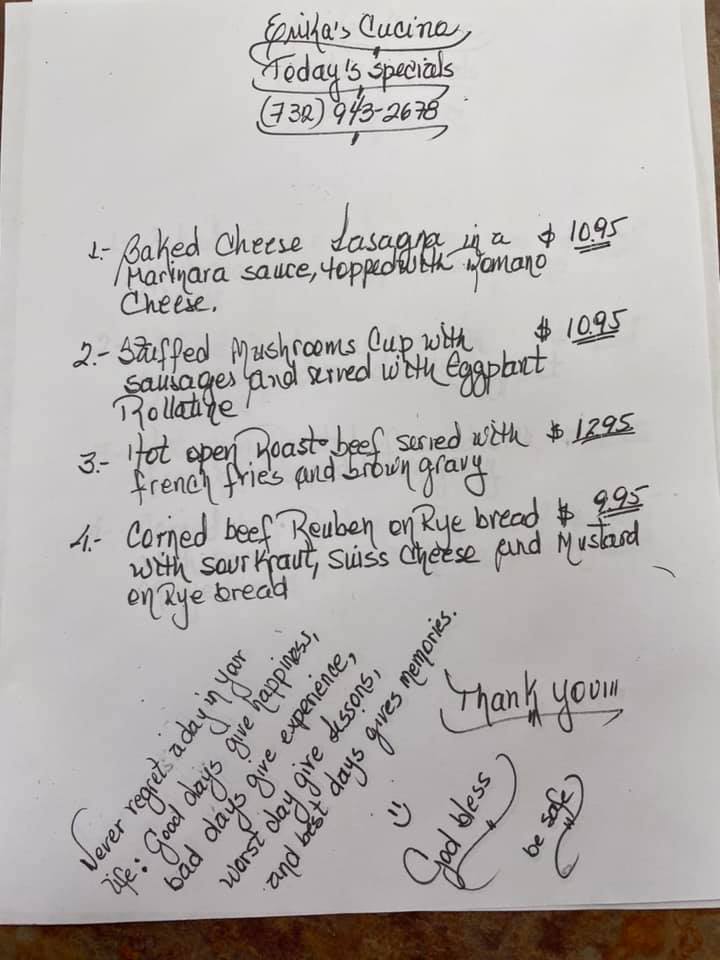 Erika's Cucina
Today's specials
(732) 943-2678
1.- Baked Cheese Lasagna in a $ 10.95
Marinara sauce, topped with Romano
Cheese.
2.- Stuffed Mushrooms Cup with $ 10.95
sausages and served with Eggplant
Rollatine
3.- Hot open Roast-beef served with $ 12.95
french fries and brown gravy
4.- Corned beef Reuben on Rye bread $ 9.95
with sourkraut, suiss cheese and Mustard
on Rye bread
Never regrets a day in your
life: Good days give happiness,
bad days give experience,
worst day give lissons,
and best days gives memories.
Thank you!!!
God bless
be safe